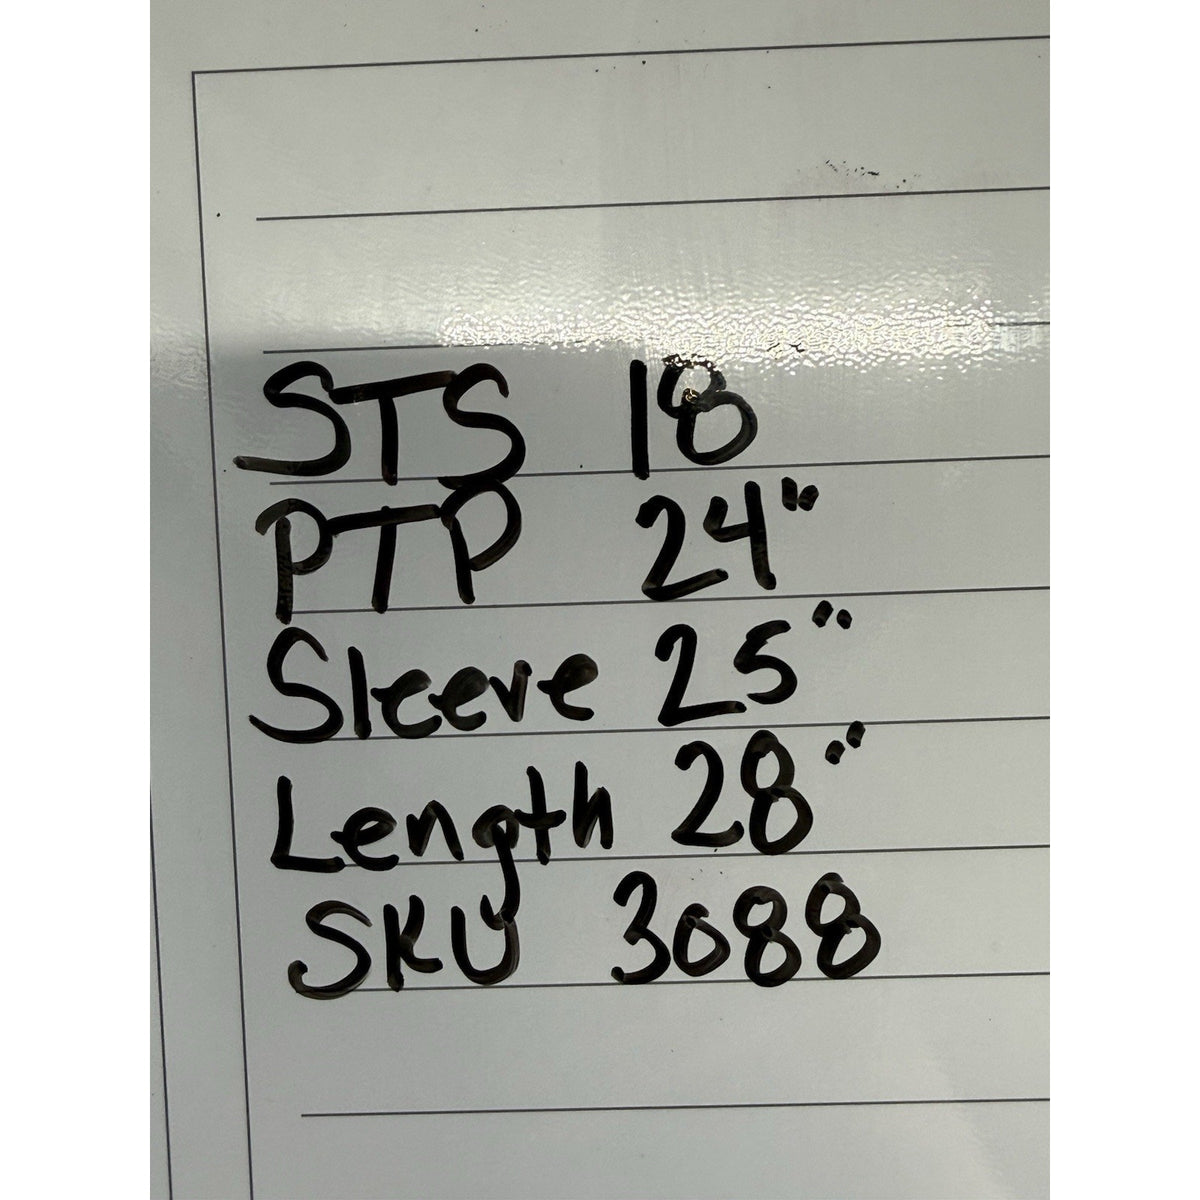 STS 18
PTP 24"
Sleeve 25"
Length 28"
SKU 3088